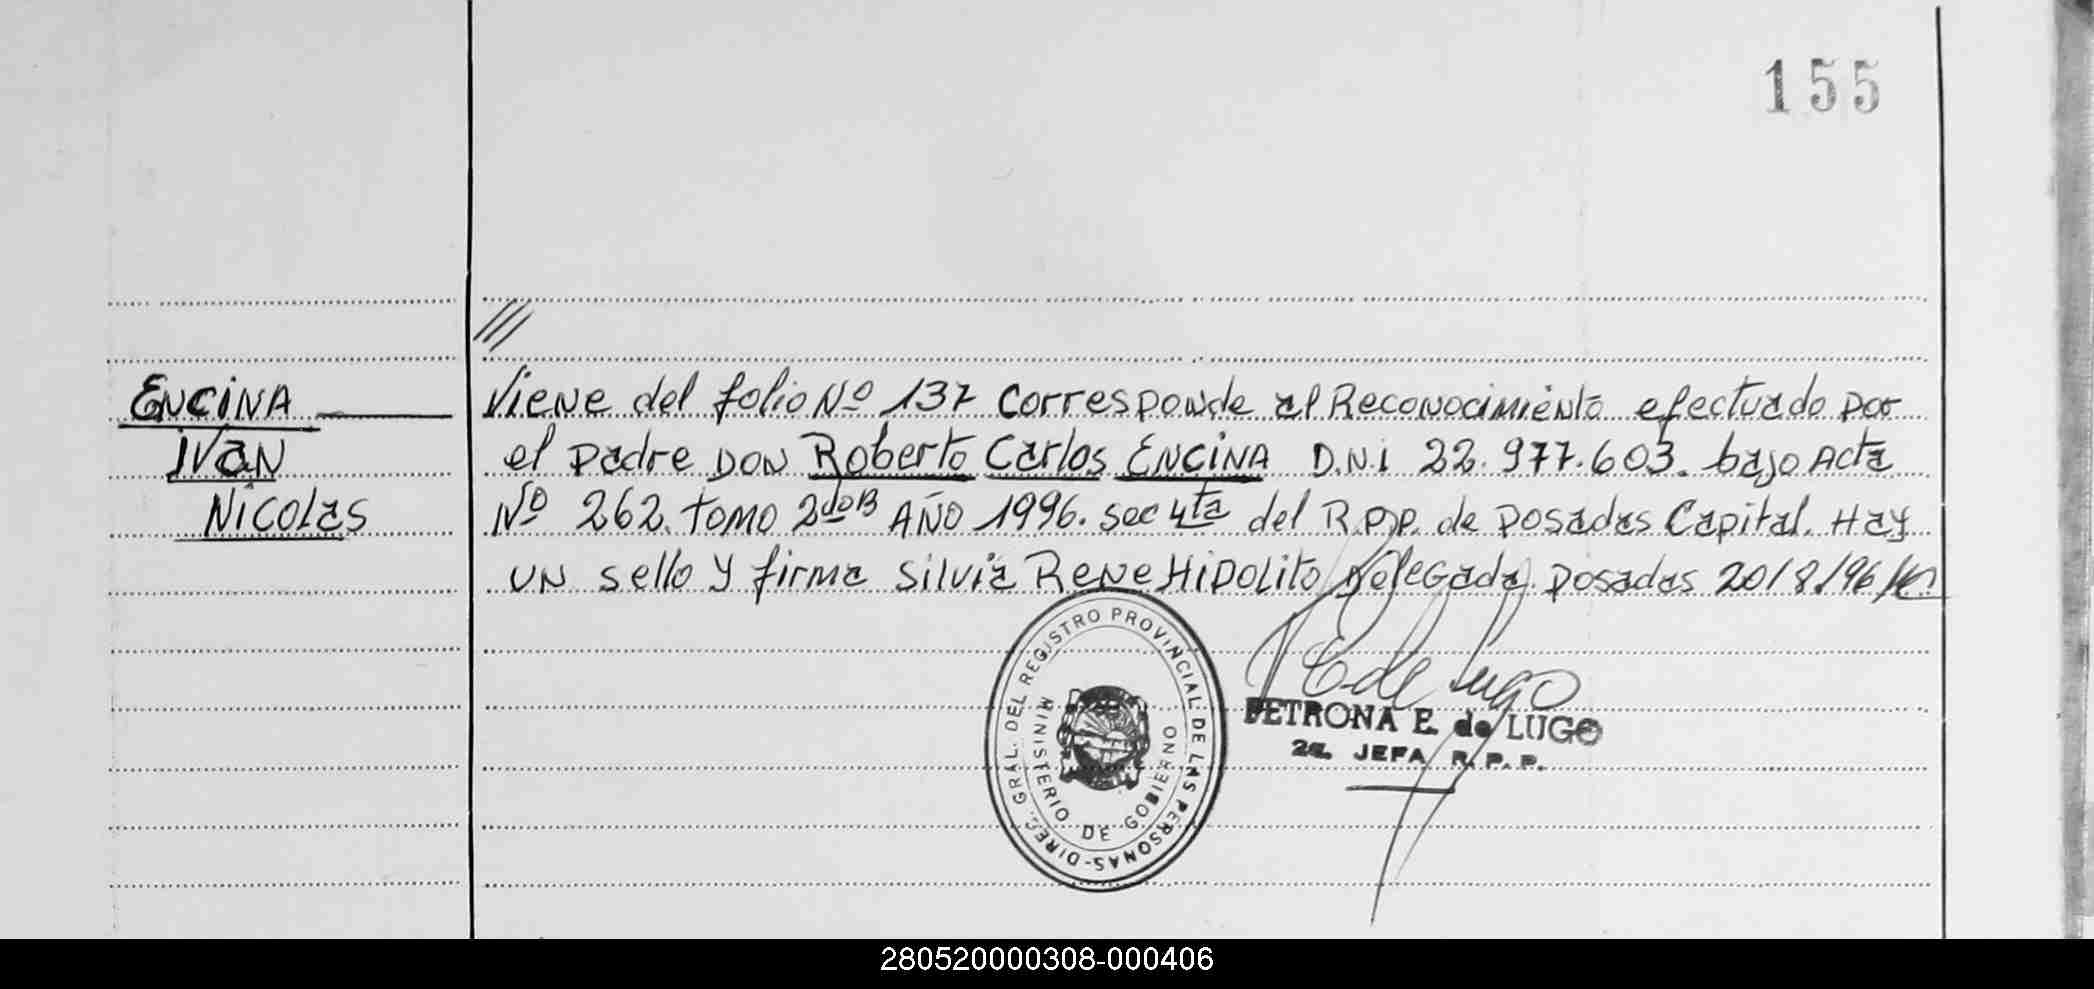 155
///
ENCINA
IVAN
NICOLAS
Viene del folio Nº 137 corresponde al Reconocimiento efectuado por
el padre DON Roberto Carlos ENCINA D.N.i 22.977.603. bajo Acta
Nº 262. tomo 2do B AÑO 1996. sec 4ta del R.P.P. de posadas Capital. Hay
UN sello y firma Silvia Rene Hipolito Delegada. posadas 20/8/96
DIREC. GRAL. DEL REGISTRO PROVINCIAL DE LAS PERSONAS-
MINISTERIO DE GOBIERNO
P E de Lugo
PETRONA E. de LUGO
2a. JEFA R. P. P.
280520000308-000406